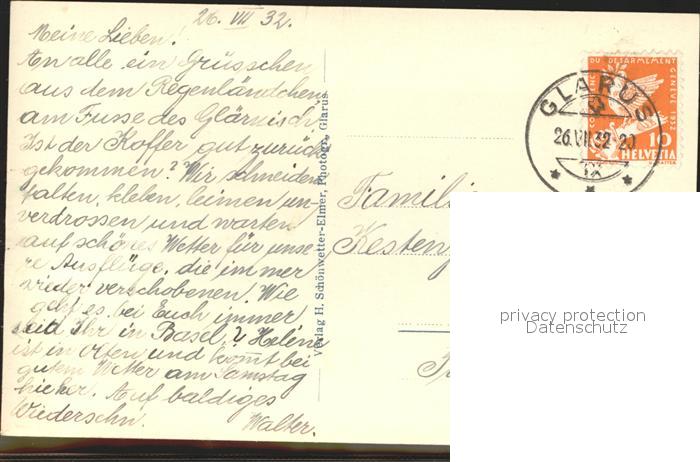 26. VII 32.
Meine Lieben!
An alle ein Grüsschen
aus dem Regenländchen
am Fusse des Glärnisch.
Ist der Koffer gut zurück
gekommen? Wir schneiden
falten, kleben, leimen un-
verdrossen und warten
auf schönes Wetter für unse
re Ausflüge, die immer
wieder verschobenen. Wie
geht es bei Euch immer
seid Ihr in Basel? Helene
ist in Olten und kommt bei
gutem Wetter am Samstag
hieher. Auf baldiges
Wiedersehn.
Walter.
Verlag H. Schönwetter-Elmer, Photogr., Glarus.
DU DESARMEMENT
GENEVE 1932
10
HELVETIA
GLARUS
26.VII.32-20
Famili
Kesten
privacy protection
Datenschutz